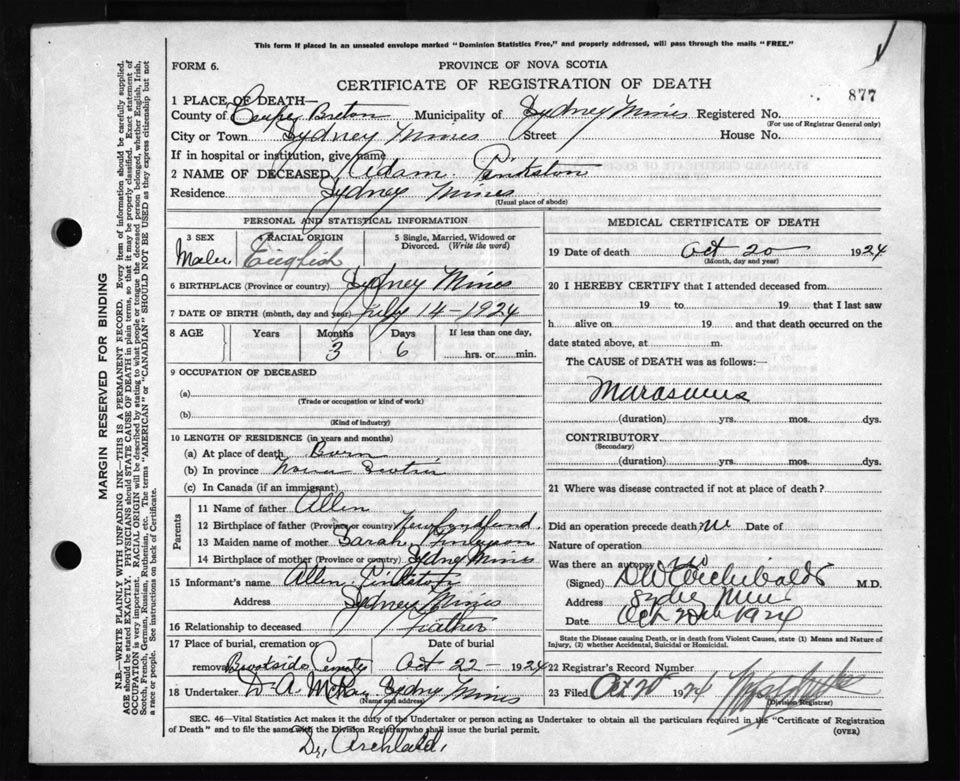 This form if placed in an unsealed envelope marked "Dominion Statistics Free," and properly addressed, will pass through the mails "FREE."
FORM 6.
PROVINCE OF NOVA SCOTIA
CERTIFICATE OF REGISTRATION OF DEATH
877
1 PLACE OF DEATH—
County of Cape Breton Municipality of Sydney Mines Registered No.
(For use of Registrar General only)
City or Town Sydney Mines Street House No.
If in hospital or institution, give name
2 NAME OF DECEASED Adam Pinkston
Residence Sydney Mines
(Usual place of abode)
PERSONAL AND STATISTICAL INFORMATION
3 SEX 4 RACIAL ORIGIN 5 Single, Married, Widowed or Divorced. (Write the word)
Male English
6 BIRTHPLACE (Province or country) Sydney Mines
7 DATE OF BIRTH (month, day and year) July 14 - 1924
8 AGE Years Months Days If less than one day,
3 6 hrs. or min.
9 OCCUPATION OF DECEASED
(a)
(Trade or occupation or kind of work)
(b)
(Kind of industry)
10 LENGTH OF RESIDENCE (in years and months)
(a) At place of death Born
(b) In province Nova Scotia
(c) In Canada (if an immigrant)
Parents
11 Name of father Allen
12 Birthplace of father (Province or country) Newfoundland.
13 Maiden name of mother Sarah
14 Birthplace of mother (Province or country) Sydney Mines
15 Informant's name Allen Pinkston
Address Sydney Mines
16 Relationship to deceased Father
17 Place of burial, cremation or removal Date of burial
Brookside Oct 22 - 1924
18 Undertaker D. A. McKay Sydney Mines
(Name and address)
MEDICAL CERTIFICATE OF DEATH
19 Date of death Oct 20 1924
(Month, day and year)
20 I HEREBY CERTIFY that I attended deceased from
19 to 19 that I last saw
h alive on 19 and that death occurred on the
date stated above, at m.
The CAUSE of DEATH was as follows:—
Marasmus
(duration) yrs. mos. dys.
CONTRIBUTORY
(Secondary)
(duration) yrs. mos. dys.
21 Where was disease contracted if not at place of death?
Did an operation precede death no Date of
Nature of operation
Was there an autopsy no
(Signed) D W Archibald M.D.
Address Sydney Mines
Date Oct 1924
State the Disease causing Death, or in death from Violent Causes, state (1) Means and Nature of
Injury, (2) whether Accidental, Suicidal or Homicidal.
22 Registrar's Record Number
23 Filed Oct 20 1924
(Division Registrar)
SEC. 46—Vital Statistics Act makes it the duty of the Undertaker or person acting as Undertaker to obtain all the particulars required in the "Certificate of Registration
of Death" and to file the same with the Division Registrar who shall issue the burial permit.
(OVER)
Dr. Archibald.
MARGIN RESERVED FOR BINDING
N.B.—WRITE PLAINLY WITH UNFADING INK—THIS IS A PERMANENT RECORD. Every item of information should be carefully supplied.
AGE should be stated EXACTLY. PHYSICIANS should STATE CAUSE OF DEATH in plain terms, so that it may be properly classified. Exact statement of
OCCUPATION is very important. RACIAL ORIGIN will be described by stating to what people or tongue the deceased person belonged, whether English, Irish,
Scotch, French, German, Russian, Ruthenian, etc. The terms "AMERICAN" or "CANADIAN" SHOULD NOT BE USED as they express citizenship but not
a race or people. See instructions on back of Certificate.